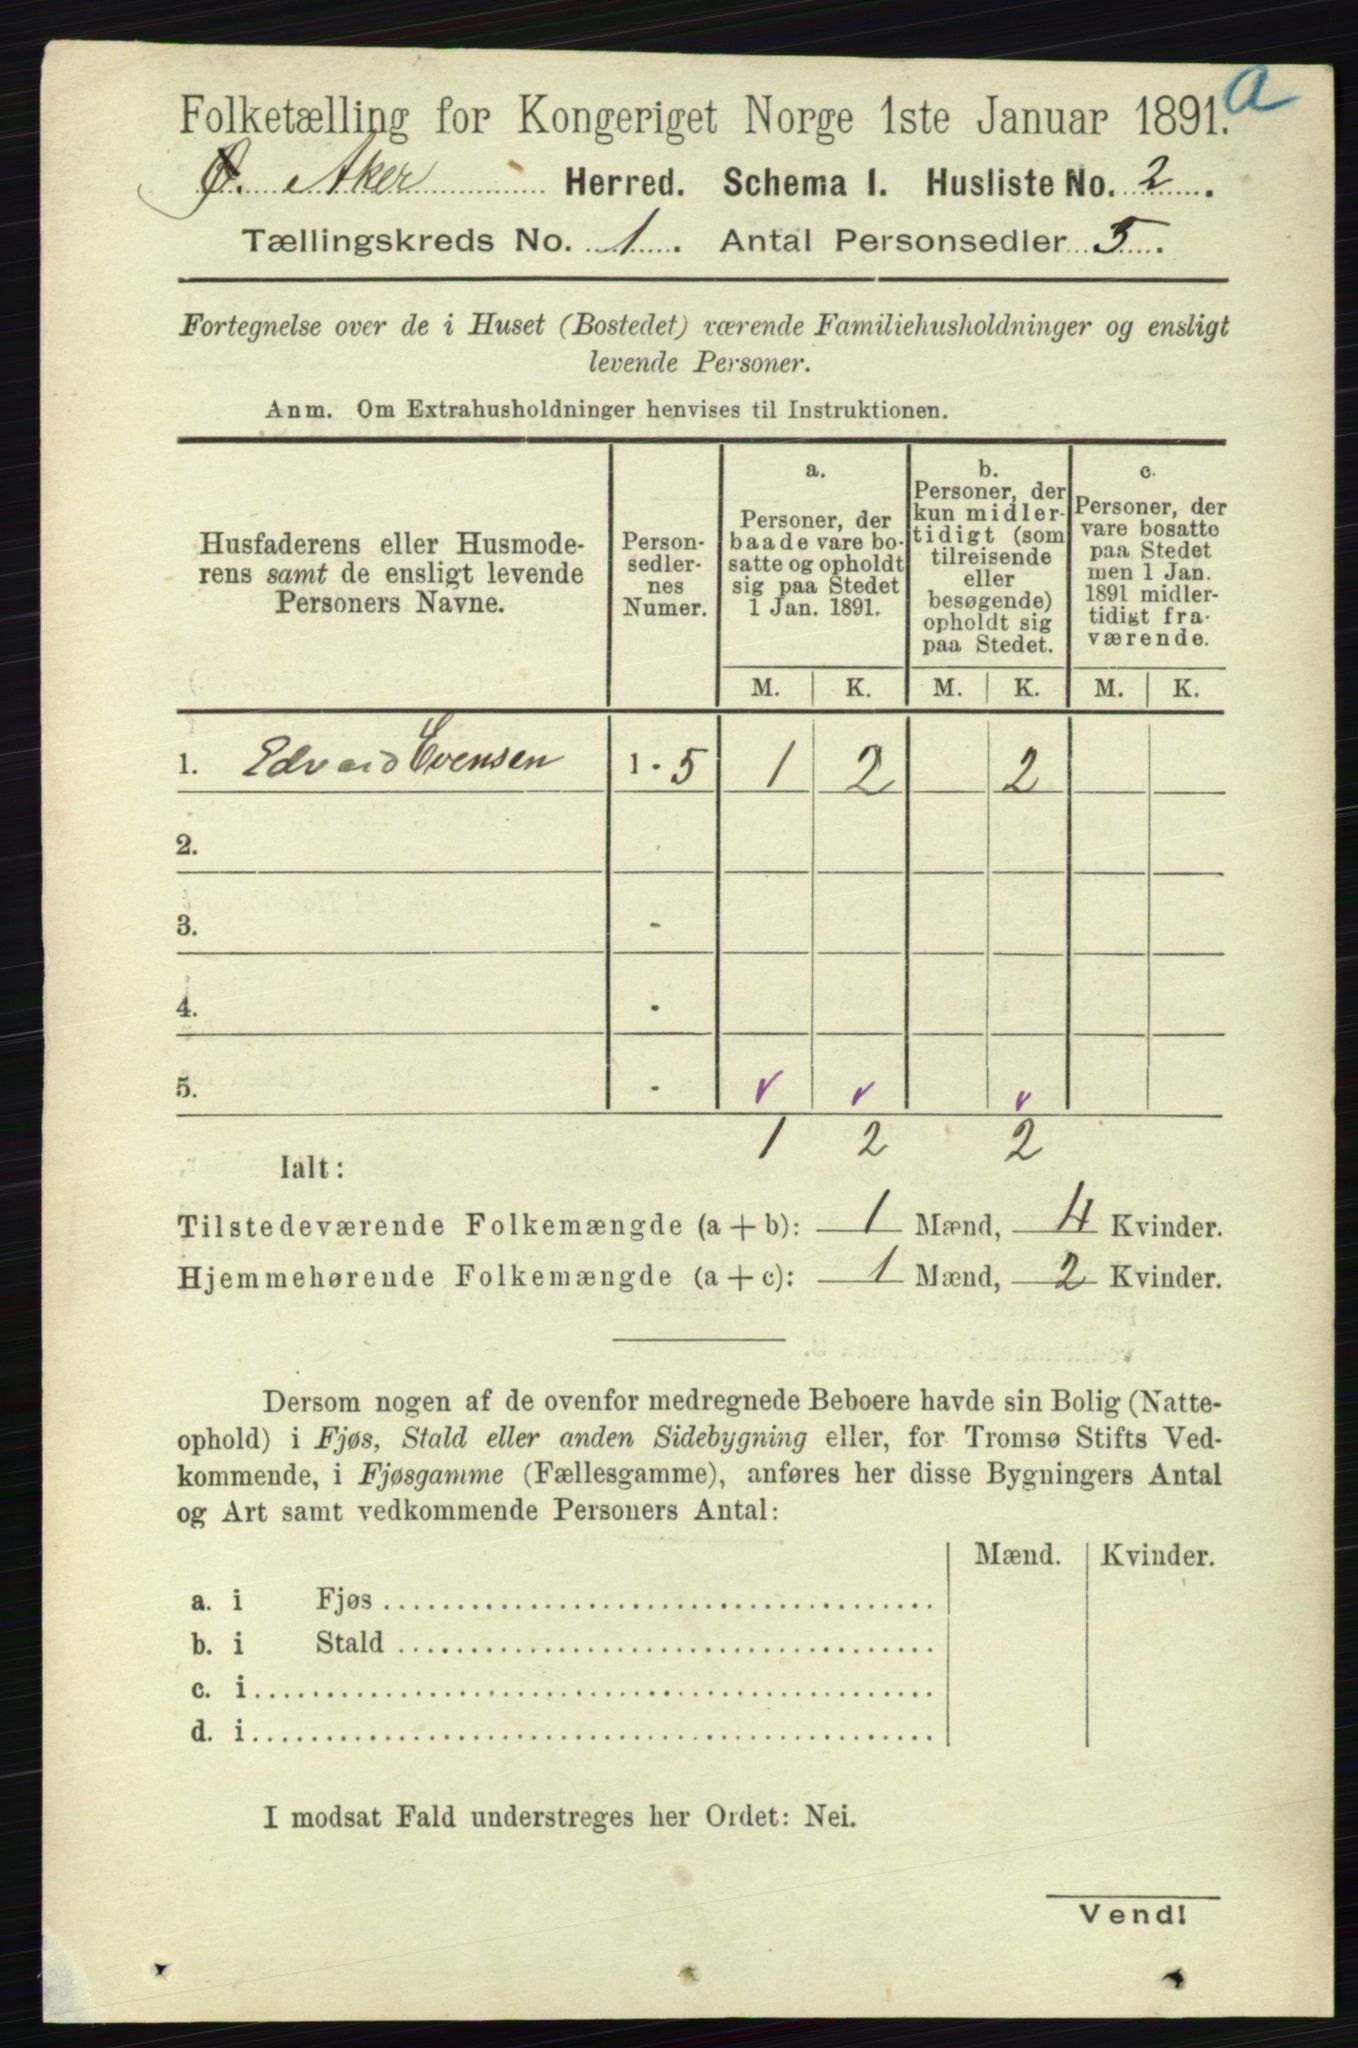 a
Folketælling for Kongeriget Norge 1ste Januar 1891.
Ø. Aker Herred. Schema I. Husliste No. 2.
Tællingskreds No. 1. Antal Personsedler 5.
Fortegnelse over de i Huset (Bostedet) værende Familiehusholdninger og ensligt
levende Personer.
Anm. Om Extrahusholdninger henvises til Instruktionen.
Husfaderens eller Husmode-
rens samt de ensligt levende
Personers Navne.
Person-
sedler-
nes
Numer.
a.
Personer, der
baade vare bo-
satte og opholdt
sig paa Stedet
1 Jan. 1891.
b.
Personer, der
kun midler-
tidigt (som
tilreisende
eller
besøgende)
opholdt sig
paa Stedet.
c.
Personer, der
vare bosatte
paa Stedet
men 1 Jan.
1891 midler-
tidigt fra-
værende.
M. K. M. K. M. K.
1. Edvard Evensen 1 - 5 1 2 2
2.
3. -
4. -
5. -
1 2 2
Ialt:
Tilstedeværende Folkemængde (a + b): 1 Mænd, 4 Kvinder.
Hjemmehørende Folkemængde (a + c): 1 Mænd, 2 Kvinder.
Dersom nogen af de ovenfor medregnede Beboere havde sin Bolig (Natte-
ophold) i Fjøs, Stald eller anden Sidebygning eller, for Tromsø Stifts Ved-
kommende, i Fjøsgamme (Fællesgamme), anføres her disse Bygningers Antal
og Art samt vedkommende Personers Antal:
Mænd. Kvinder.
a. i Fjøs
b. i Stald
c. i
d. i
I modsat Fald understreges her Ordet: Nei.
Vend!